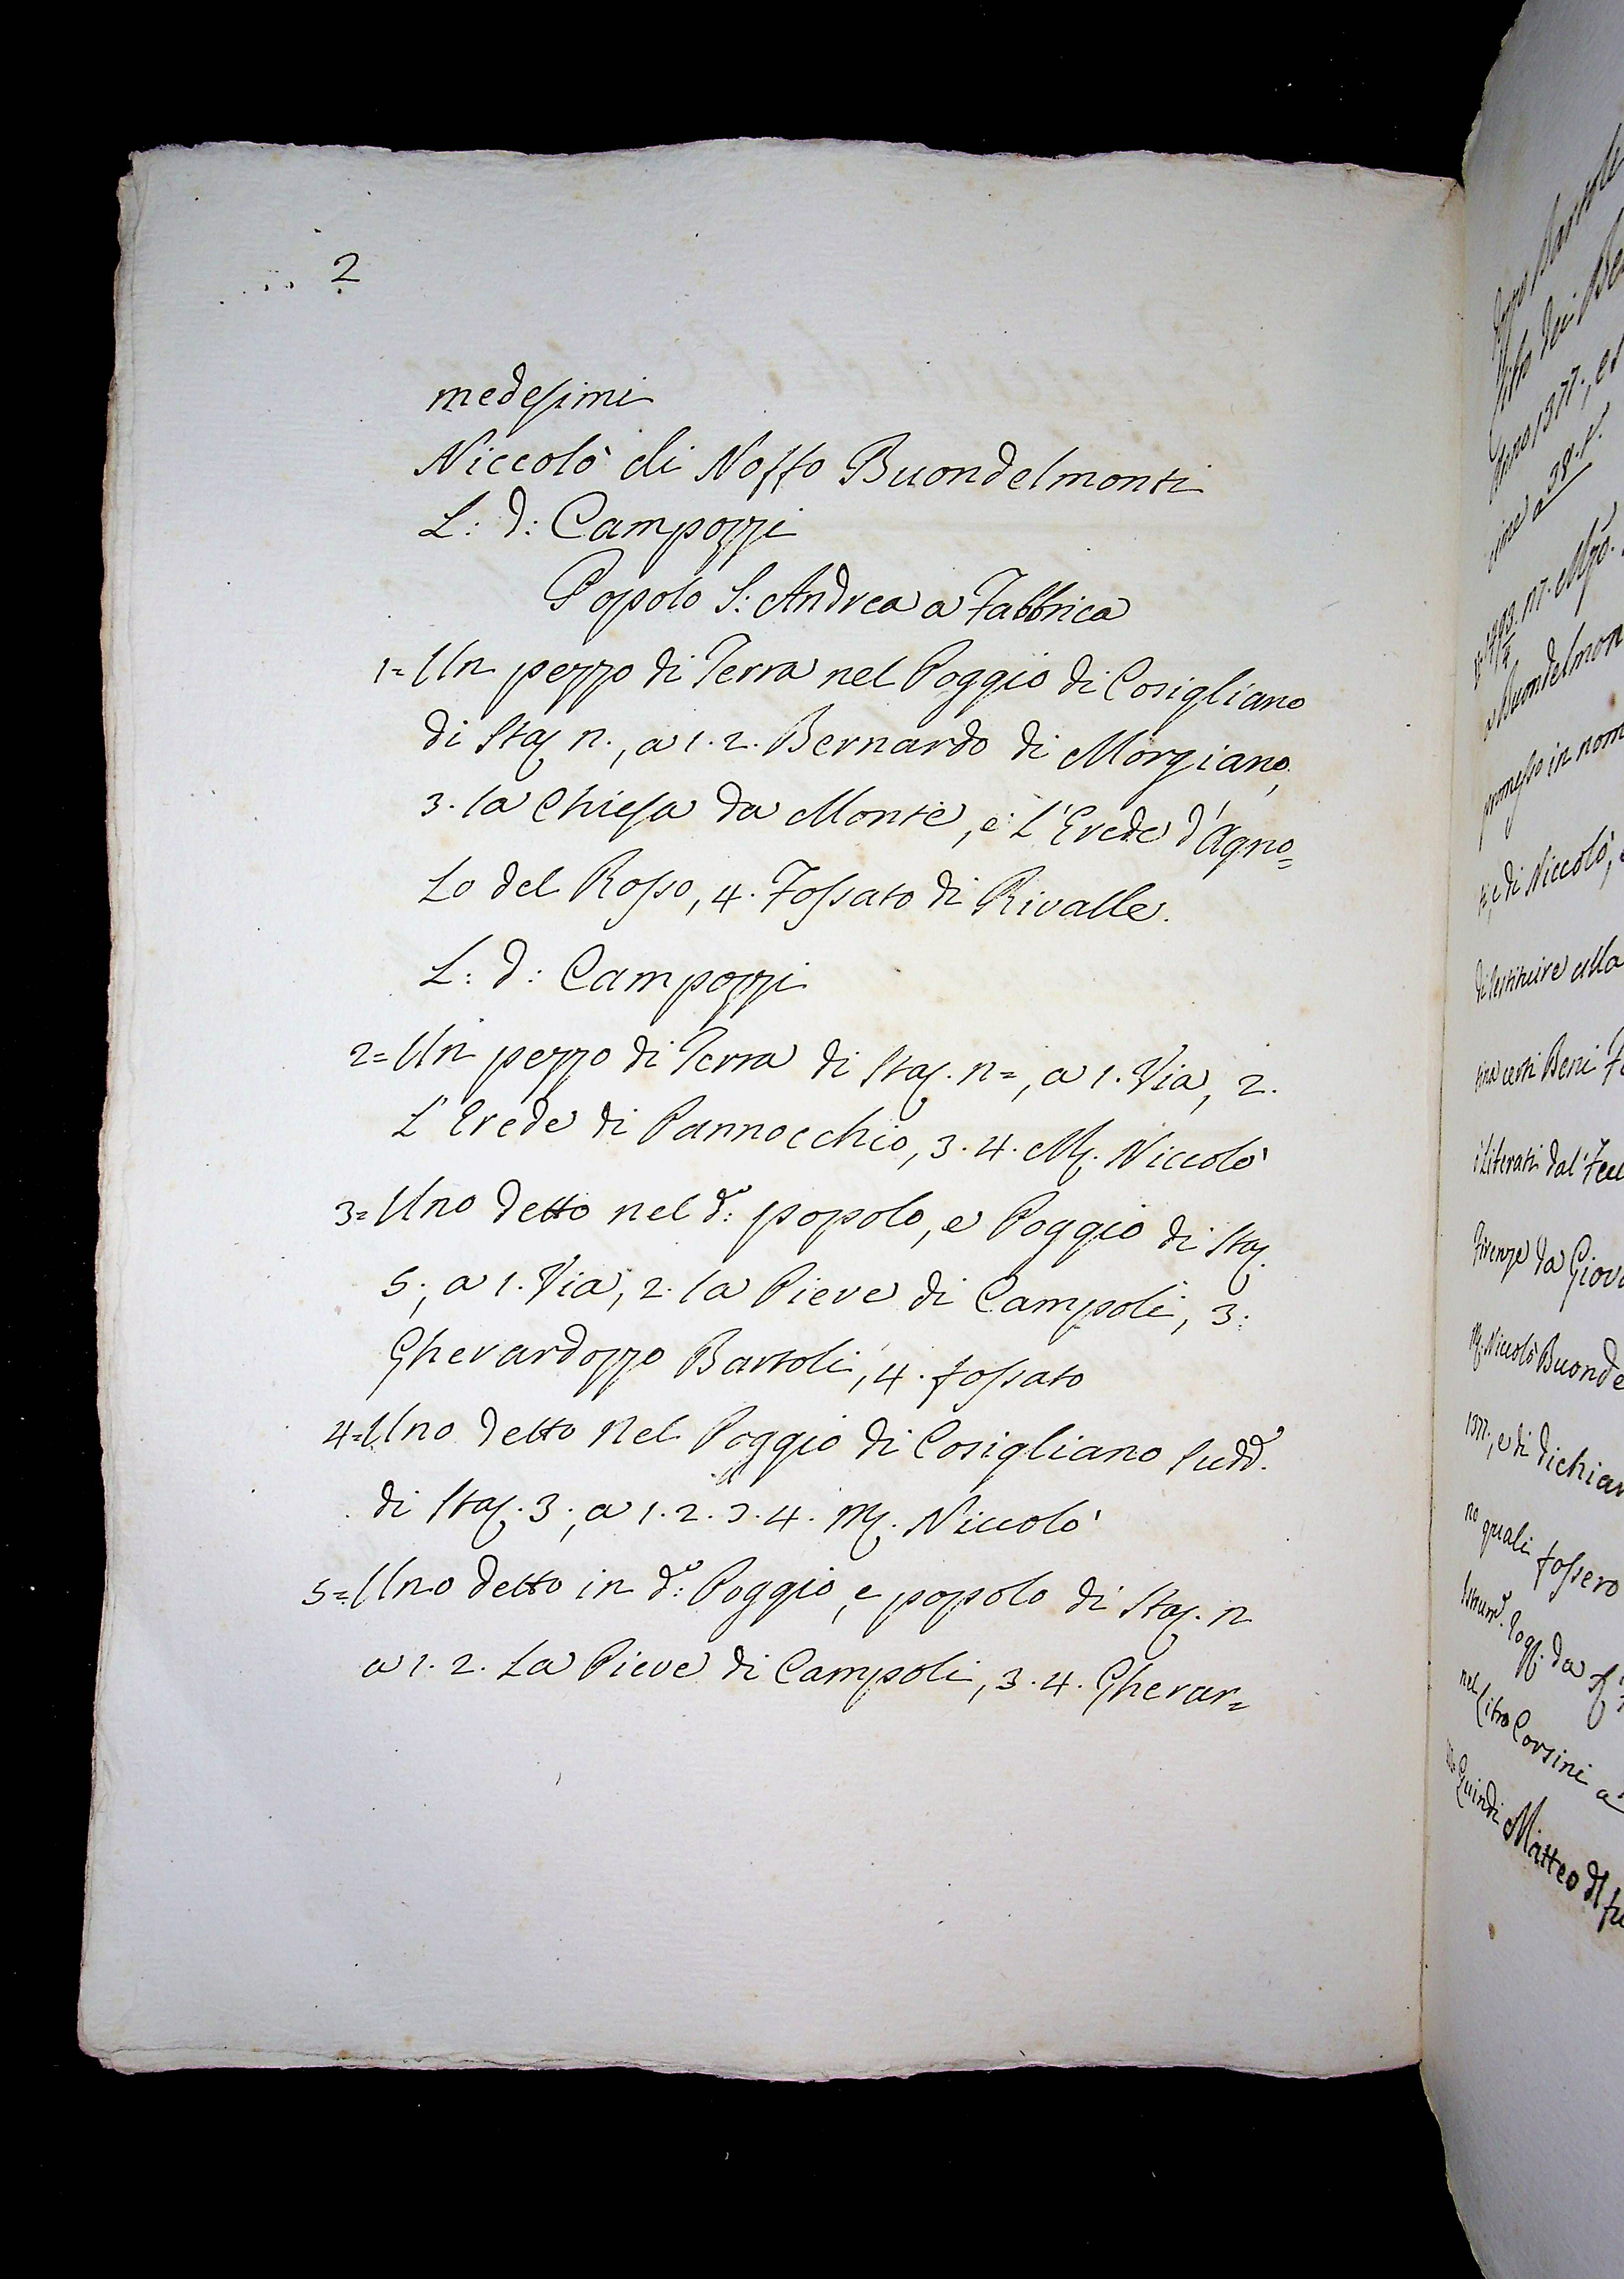 2
medesimi
Niccolò di Noffo Buondelmonti
L: d: Campozzi
Popolo S: Andrea a Fabbrica
1= Un pezzo di Terra nel Poggio di Cosigliano
di Staj n., a 1. 2. Bernardo di Morgiano,
3. la Chiesa da Monte, e L'Erede d'Agno=
Lo del Rosso, 4. Fossato di Rivalle.
L: d: Campozzi
2= Un pezzo di Terra di Staj. n=, a 1. Via, 2.
L'Erede di Pannocchio, 3. 4. M. Niccolò
3= Uno detto nel d:º popolo, e Poggio di Staj.
5; a 1. Via, 2. la Pieve di Campoli, 3:
Gherardozzo Bartoli, 4. fossato
4= Uno detto Nel Poggio di Cosigliano Sudd.º
di Staj. 3; a 1. 2. 3. 4. M. Niccolò
5= Uno detto in d:º Poggio, e popolo di Staj. n
a 1. 2. La Pieve di Campoli, 3. 4. Gherar=
Anno 1377., et
38. t.
a Buondelmon
promesso in nom
e di Niccolò,
di restituire alla
certi Beni
Firenze da Giov
M. Niccolò Buonde
1377., e di dichiar
no quali fossero
da
nel Libro Corsini a
Quindi Matteo di fu